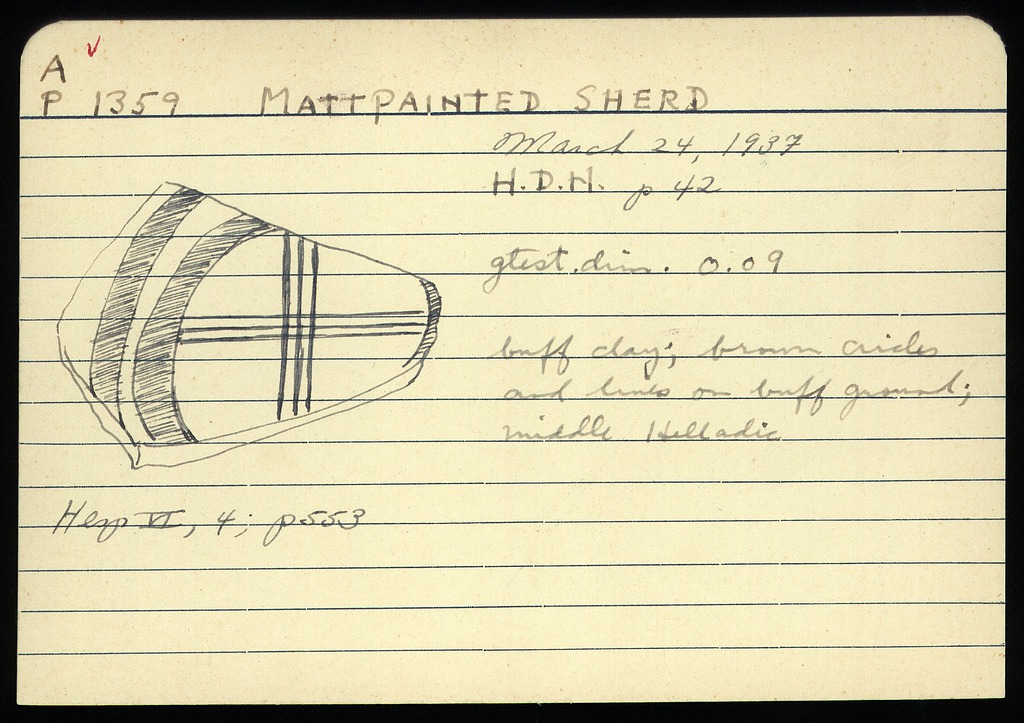 A ✓
P 1359 MATTPAINTED SHERD
March 24, 1937
H.D.H. p 42
gtest. dim. 0.09
buff clay; brown circles
and lines on buff ground;
middle Helladic
Hesp VI, 4; p553